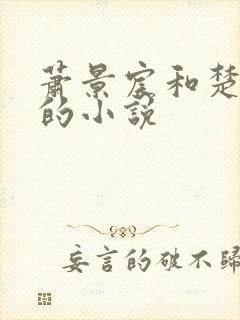 萧景宸和楚
的小说
妄言的破不归